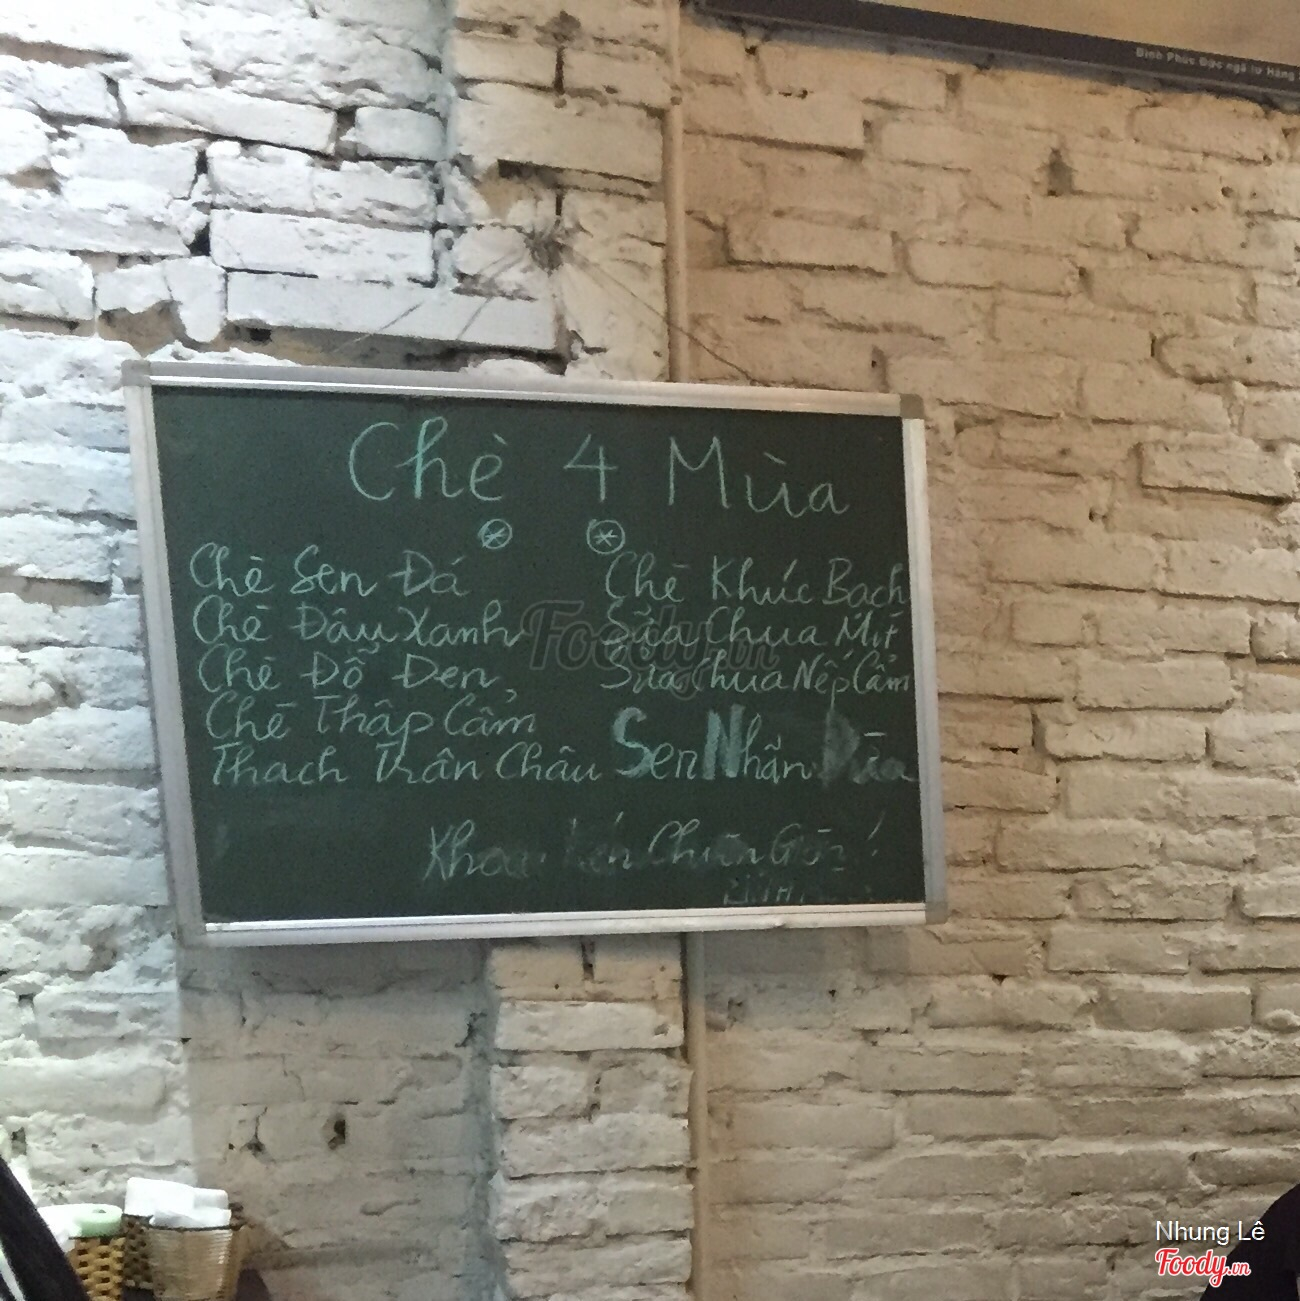 Đình Phúc Độc ngã tư Hàng
Chè 4 Mùa
Chè Sen Đá
Chè Đậu Xanh
Chè Đỗ Đen
Chè Thập Cẩm
Thạch Trân Châu
Chè Khúc Bạch
Sữa Chua Mít
Sữa Chua Nếp Cẩm
Sen Nhãn Dừa
Foody.vn
Nhung Lê
Foody.vn